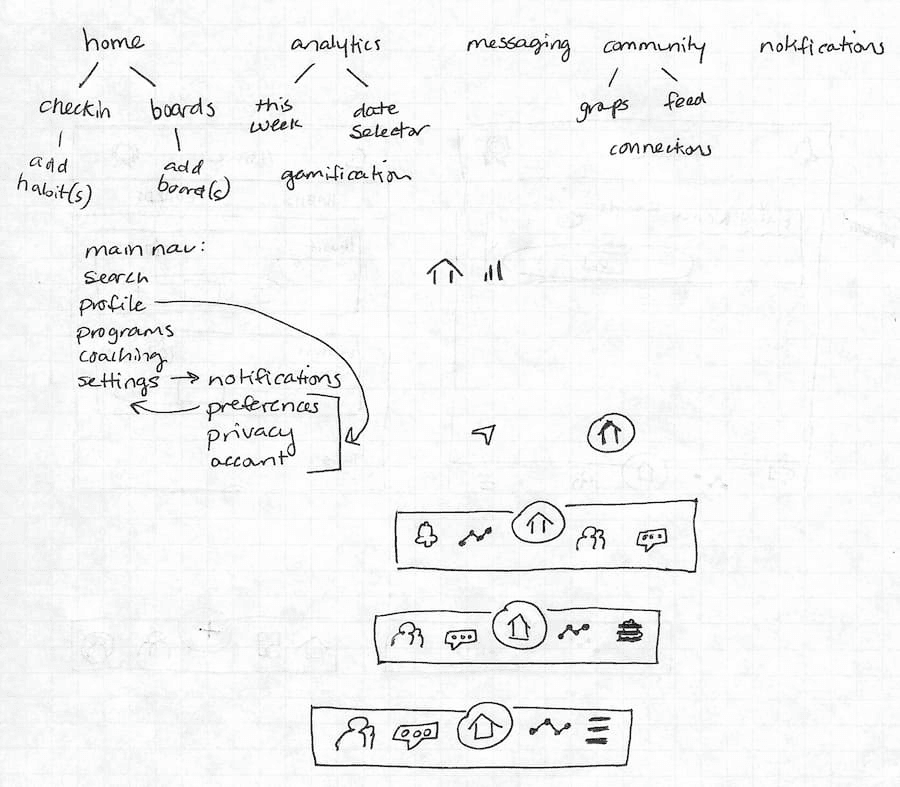 home analytics messaging community notifications
checkin boards this week date selector groups feed
add habit(s) add board(s) gamification connections
main nav:
search
profile
programs
coaching
settings → notifications
preferences
privacy
account